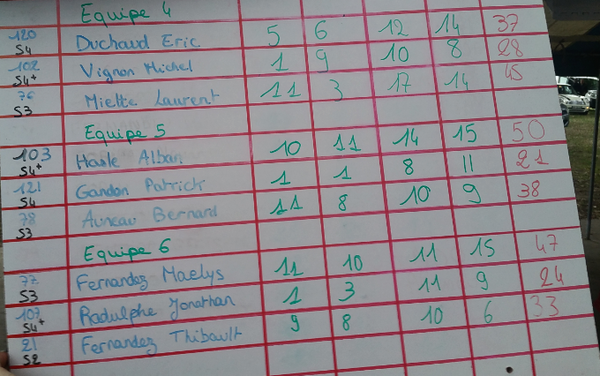 Equipe 4
120 S4 Duchaud Eric 5 6 12 14 37
102 S4+ Vignon Michel 1 9 10 8 28
76 S3 Miette Laurent 11 3 17 14 45
Equipe 5
103 S4+ Haile Alban 10 11 14 15 50
121 S4 Gandon Patrick 1 1 8 11 21
78 S3 Auneau Bernard 11 8 10 9 38
Equipe 6
77 S3 Fernandez Maelys 11 10 11 15 47
107 S4+ Radulphe Jonathan 1 3 11 9 24
21 S2 Fernandez Thibault 9 8 10 6 33